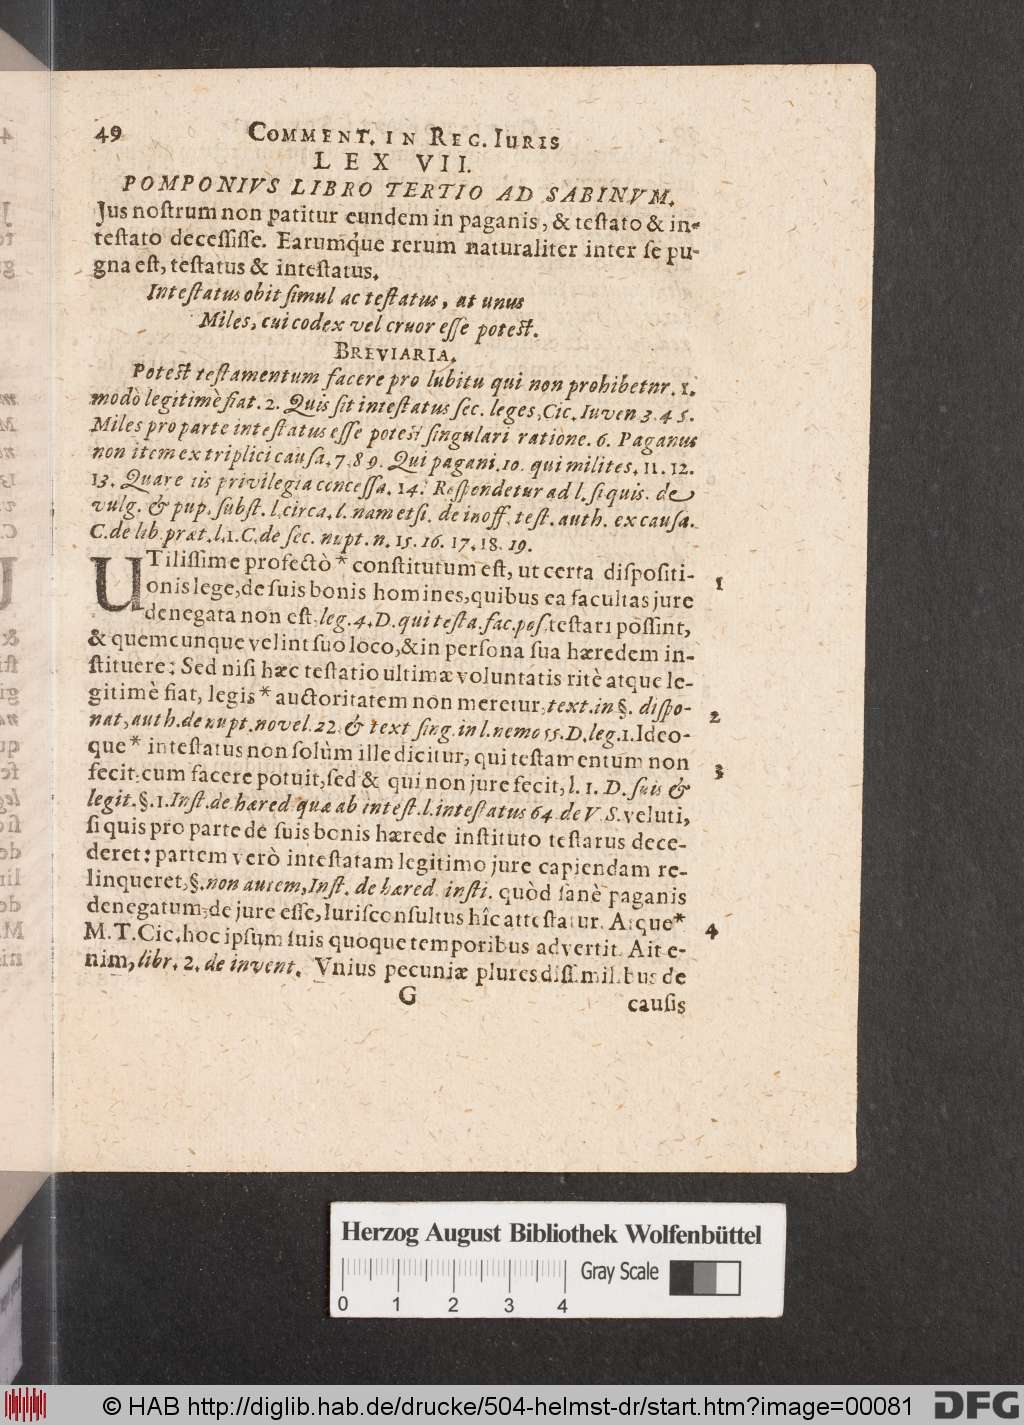 49 COMMENT. IN REG. IURIS
LEX VII.
POMPONIVS LIBRO TERTIO AD SABINVM.
Jus nostrum non patitur eundem in paganis, & testato & in-
testato decessisse. Earumq́ue rerum naturaliter inter se pu-
gna est, testatus & intestatus.
Intestatus obit simul ac testatus, at unus
Miles, cui codex vel cruor esse potest.
BREVIARIA.
Potest testamentum facere pro lubitu qui non prohibetur. 1.
modò legitimè fiat. 2. Quis sit intestatus sec. leges, Cic. Iuven 3. 4 5.
Miles pro parte intestatus esse potest singulari ratione. 6. Paganus
non item ex triplici causa. 7. 8 9. Qui pagani. 10. qui milites. 11. 12.
13. Quare iis privilegia concessa. 14. Respendetur ad l. si quis. de
vulg. & pup. subst. l. circa. l. nam etsi. de inoff. test. auth. ex causa.
C. de lib præt. l. 1. C. de sec. nupt. n. 15. 16. 17. 18. 19.
UTilissime profectò * constitutum est, ut certa dispositi- 1
onis lege, de suis bonis homines, quibus ea facultas jure
denegata non est, leg. 4. D. qui testa. fac. pos. testari possint,
& quemcunque velint suo loco, & in persona sua hæredem in-
stituere: Sed nisi hæc testatio ultimæ voluntatis ritè atque le-
gitimè fiat, legis * auctoritatem non meretur, text. in §. dispo- 2
nat, auth. de nupt. novel. 22. & text sing. in l. nemo 55. D. leg. 1. Ideo-
que * intestatus non solùm ille dicitur, qui testamentum non 3
fecit, cum facere potuit, sed & qui non jure fecit, l. 1. D. suis &
legit. §. 1. Inst. de hæred quæ ab intest. l. intestatus 64 de V S. veluti,
si quis pro parte de suis bonis hærede instituto testarus dece-
deret: partem verò intestatam legitimo jure capiendam re-
linqueret, §. non autem, Inst. de hæred. insti. quòd sanè paganis
denegatum, de jure esse, Iurisconsultus hîc attestatur. Atque* 4
M. T. Cic. hoc ipsum suis quoque temporibus advertit. Ait e-
nim, libr. 2. de invent. Vnius pecuniæ plures dissimilibus de
G causis
Herzog August Bibliothek Wolfenbüttel
0 1 2 3 4 Gray Scale
© HAB http://diglib.hab.de/drucke/504-helmst-dr/start.htm?image=00081 DFG